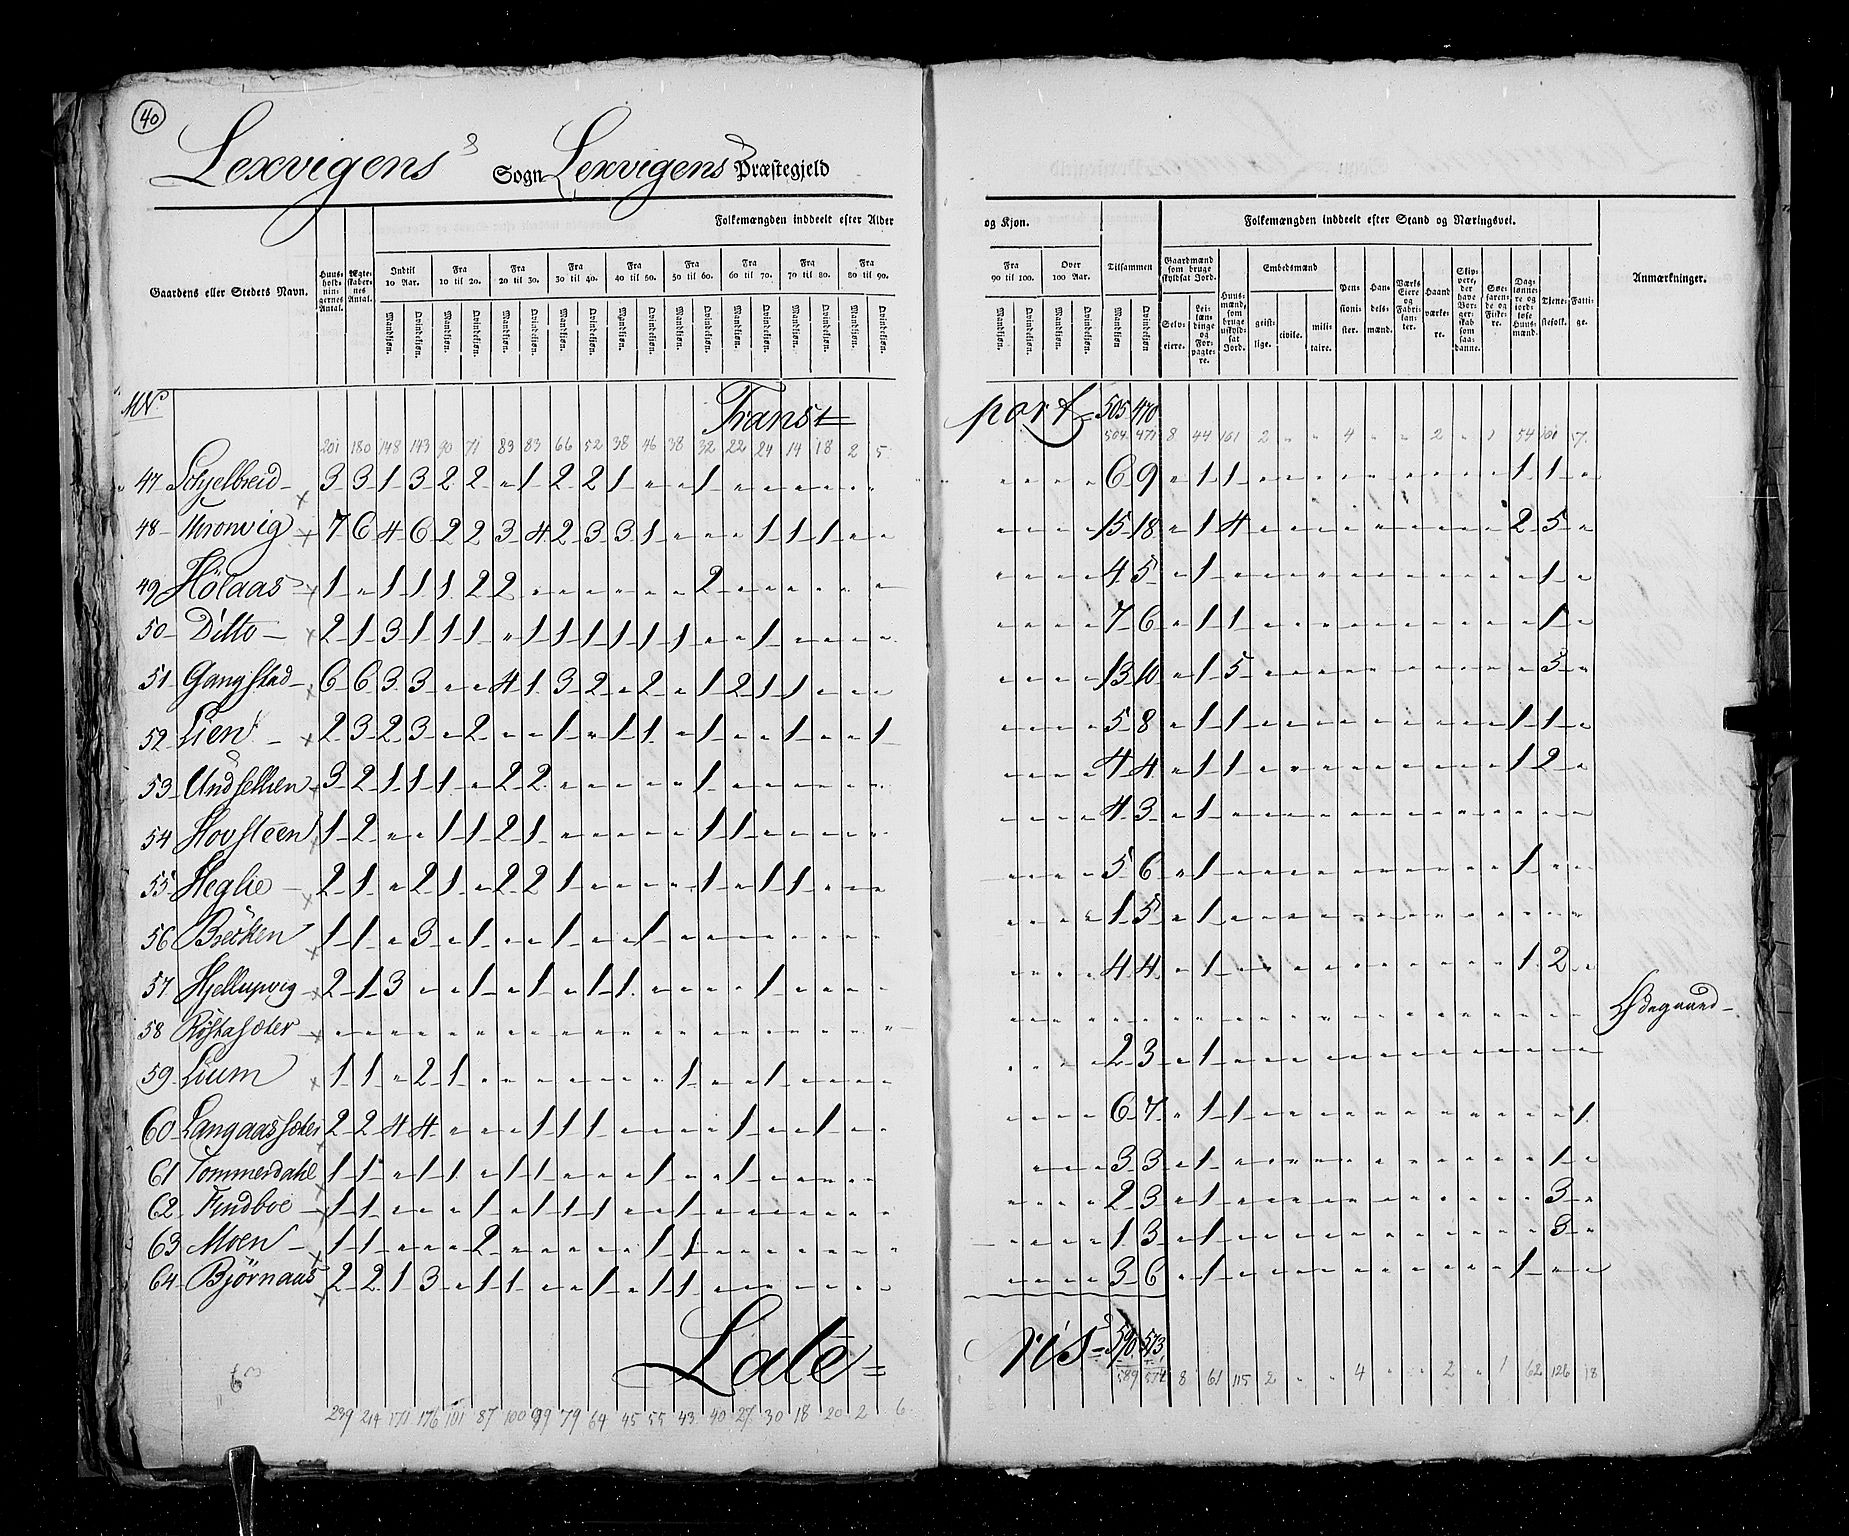 40
Lexvigens Sogn Lexvigens Præstegjeld
Gaardens eller Stedets Navn.
Huusholdningernes Antal.
Ægteskabernes Antal.
Folkemængden inddeelt efter Alder og Kjøn.
Indtil 10 Aar. Fra 10 til 20. Fra 20 til 30. Fra 30 til 40. Fra 40 til 50. Fra 50 til 60. Fra 60 til 70. Fra 70 til 80. Fra 80 til 90. Fra 90 til 100. Over 100 Aar. Tilsammen
Mandkjøn. Qvindekjøn.
Folkemængden inddeelt efter Stand og Næringsvei.
Gaardmænd som bruge skyldsat Jord.
Selveiere. Leilændinge og Forpagtere.
Huusmænd, som bruge uskyldsat Jord.
Embedsmænd
geistlige. civile. militaire.
Pensionister. Handelsmænd. Værks Eiere og Fabrikanter. Haandværkere. Skippere, der have Borgerskab som saadanne. Søefarende og Fiskere. Daglønnere og jordløse Huusmænd. Tjenestefolk. Fattige.
Anmærkninger.
MNo Transport 505 470
201 180 148 143 90 71 83 83 66 52 38 46 38 32 22 24 14 18 2 5 504 471 8 44 101 2 " " 4 " " 2 " 1 54 101 17
47 Schjelbreid 3 3 1 3 2 2 " 1 2 2 1 " " 1 " " " " " " " " " " 6 9 " 1 1 " " " " " " " " " 1 1 "
48 Kronvig 7 6 4 6 2 2 3 4 2 3 3 1 " " " 1 1 1 " " " " " " 15 18 " 1 4 " " " " " " " " " 2 5 "
49 Hölaas 1 " 1 1 1 2 2 " " " " " " 2 " " " " " " " " " " 4 5 " 1 " " " " " " " " " " " 1 "
50 Ditto 2 1 3 1 1 1 " 1 1 1 1 1 1 " " 1 " " " " " " " " 7 6 " 1 1 " " " " " " " " " " 1 "
51 Gangstad 6 6 3 3 " " 4 1 3 2 " 2 " 1 2 1 1 " " " " " " " 13 10 " 1 5 " " " " " " " " " " 3 "
52 Lien 2 3 2 3 " 2 " " 1 " 1 1 " 1 " " 1 " " 1 " " " " 5 8 " 1 1 " " " " " " " " " 1 1 "
53 Undsetlien 3 2 1 1 1 " 2 2 " " " " " 1 " " " " " " " " " " 4 4 " 1 1 " " " " " " " " " 1 2 "
54 Hovsteen 1 2 " " 1 1 2 1 " " " " " 1 1 " " " " " " " " " 4 3 " 1 " " " " " " " " " " " " "
55 Heglie 2 1 " 2 1 " 2 2 1 " " " " 1 " 1 1 " " " " " " " 5 6 " 1 " " " " " " " " " " 1 " "
56 Brecken 1 1 " 3 " 1 " " 1 " " 1 " " " " " " " " " " " " 1 5 " 1 " " " " " " " " " " " " "
57 Hjellupvig 2 1 3 " " 1 " 1 " 1 1 " " " " 1 " " " " " " " " 4 4 " 1 " " " " " " " " " " 1 2 "
58 Röstasæter " " " " " " " " " " " " " " " " " " " " " " " " " " " " " " " " " " " " " " " " " Ödegaard
59 Lium 1 1 " 2 1 " " " " " " " 1 " " 1 " " " " " " " " 2 3 " 1 " " " " " " " " " " " " "
60 Langaassæter 2 2 4 4 " " " 1 1 1 " " " " 1 " " 1 " " " " " " 6 7 " 1 1 " " " " " " " " " " " 1
61 Tommerdahl 1 1 " 1 1 " 1 1 " " " 1 " " 1 " " " " " " " " " 3 3 " 1 " " " " " " " " " " " 1 "
62 Findboe 1 1 " " " 1 " 1 1 1 " " 1 " " " " " " " " " " " 2 3 " 1 " " " " " " " " " " " 3 "
63 Moen 1 1 " " " 2 " " " " " 1 1 " " " " " " " " " " " 1 3 " 1 " " " " " " " " " " " 3 "
64 Björnaas 2 2 1 3 " 1 1 " " 1 " 1 1 " " " " " " " " " " " 3 6 " 1 " " " " " " " " " " 1 " "
Late ris 590 573
589 574 8 61 115 2 " " 4 " " 2 " 1 62 126 18
239 214 171 176 101 87 100 99 79 64 45 55 43 40 27 30 18 20 2 6